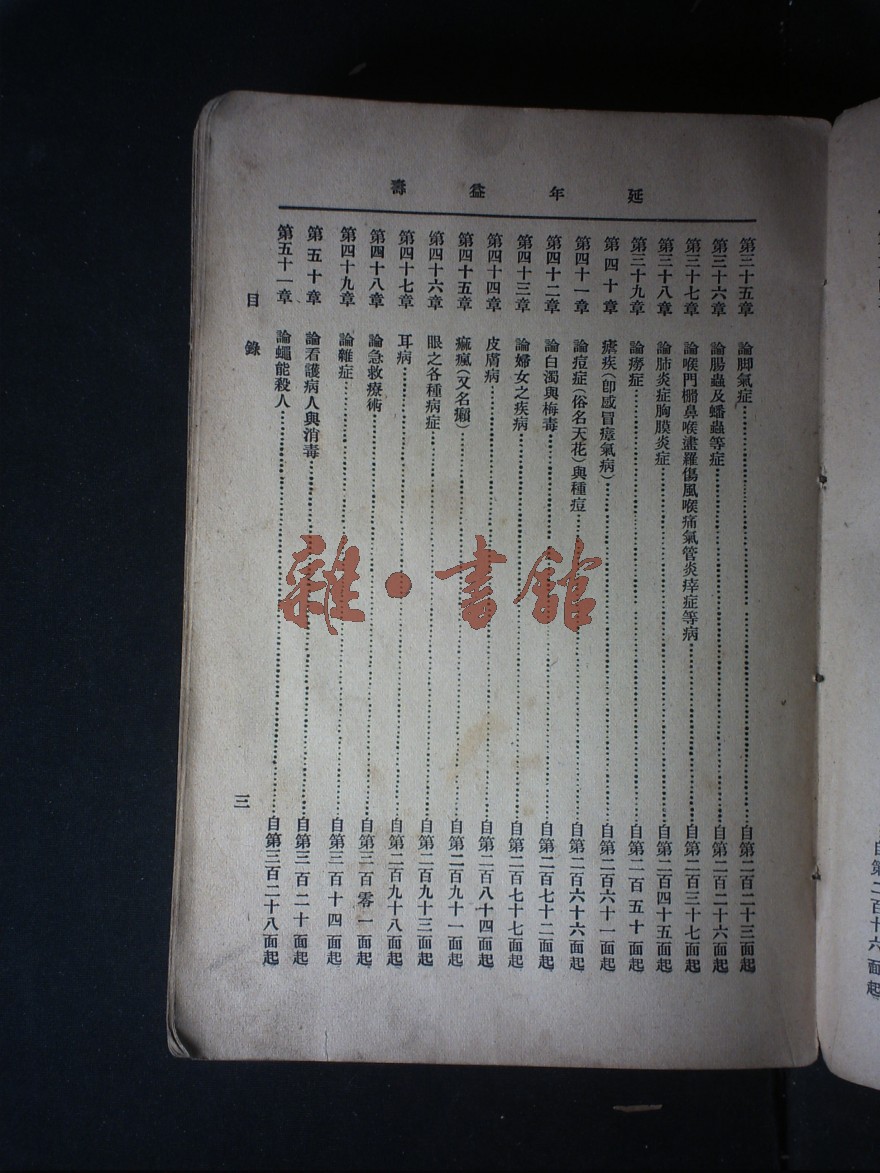 延年益壽
第三十五章 論脚氣症 自第二百二十三面起
第三十六章 論腸蟲及蟠蟲等症 自第二百二十六面起
第三十七章 論喉門櫊鼻喉盡羅傷風喉痛氣管炎痵症等病 自第二百三十七面起
第三十八章 論肺炎症胸膜炎症 自第二百四十五面起
第三十九章 論癆症 自第二百五十面起
第四十章 瘧疾(卽感冒瘴氣病) 自第二百六十一面起
第四十一章 論痘症(俗名天花)與種痘 自第二百六十六面起
第四十二章 論白濁與梅毒 自第二百七十二面起
第四十三章 論婦女之疾病 自第二百七十七面起
第四十四章 皮膚病 自第二百八十四面起
第四十五章 痲瘋(又名癩) 自第二百九十一面起
第四十六章 眼之各種病症 自第二百九十三面起
第四十七章 耳病 自第二百九十八面起
第四十八章 論急救療術 自第三百零一面起
第四十九章 論雜症 自第三百十四面起
第五十章 論看護病人與消毒 自第三百二十面起
第五十一章 論蠅能殺人 自第三百二十八面起
目錄
三
雜·書館
自第二百十六面起